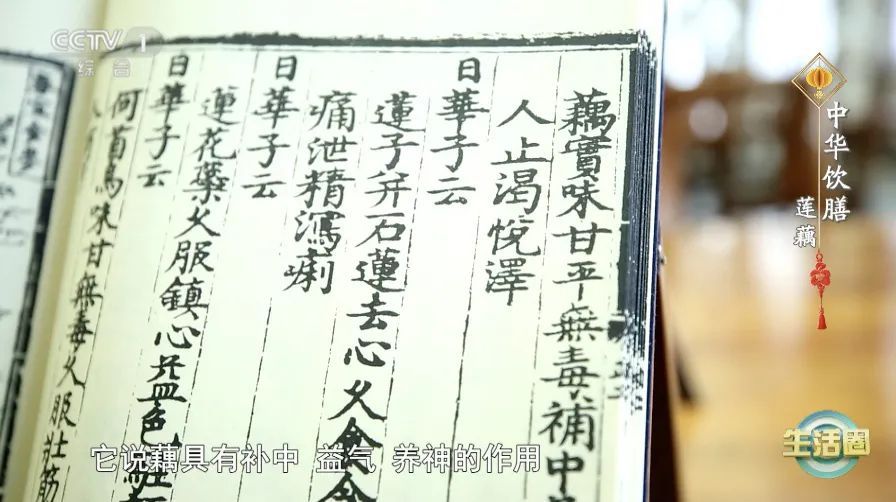 CCTV 1
综合
藕實味甘平無毒補中
人止渴悅澤
日華子云
蓮子并石蓮去心久食令
痛泄精瀉痢
日華子云
蓮花蘂久服鎮心益色
日華子云
何首烏味甘無毒久服壯筋
中华饮膳
莲藕
它说藕具有补中 益气 养神的作用
生活圈